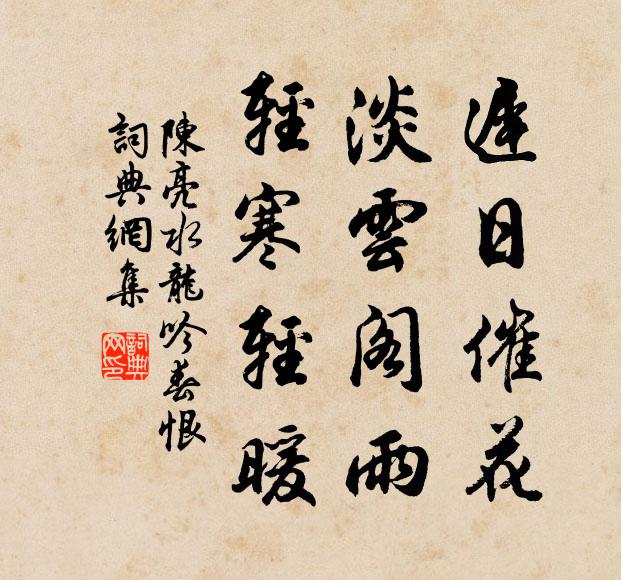 遲日催花
淡雲閣雨
輕寒輕暖
陳亮水龍吟春恨
詞典網集
詞典網印